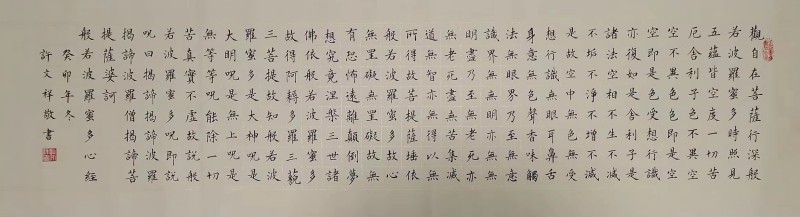 觀自在菩薩行深般
若波羅蜜多時照見
五蘊皆空度一切苦
厄舍利子色不異空
空不異色色即是空
空即是色受想行識
亦復如是舍利子是
諸法空相不生不滅
不垢不淨不增不減
是故空中無色無受
想行識無眼耳鼻舌
身意無色聲香味觸
法無眼界乃至無意
識界無無明亦無無
明盡乃至無老死亦
無老死盡無苦集滅
道無智亦無得以無
所得故菩提薩埵依
般若波羅蜜多故心
無罣礙無罣礙故無
有恐怖遠離顛倒夢
想究竟涅槃三世諸
佛依般若波羅蜜多
故得阿耨多羅三藐
三菩提故知般若波
羅蜜多是大神呪是
大明呪是無上呪是
無等等呪能除一切
苦真實不虛故說般
若波羅蜜多呪即說
呪曰揭諦揭諦波羅
揭諦波羅僧揭諦菩
提薩婆訶
般若波羅蜜多心經
癸卯年冬
許文祥敬書